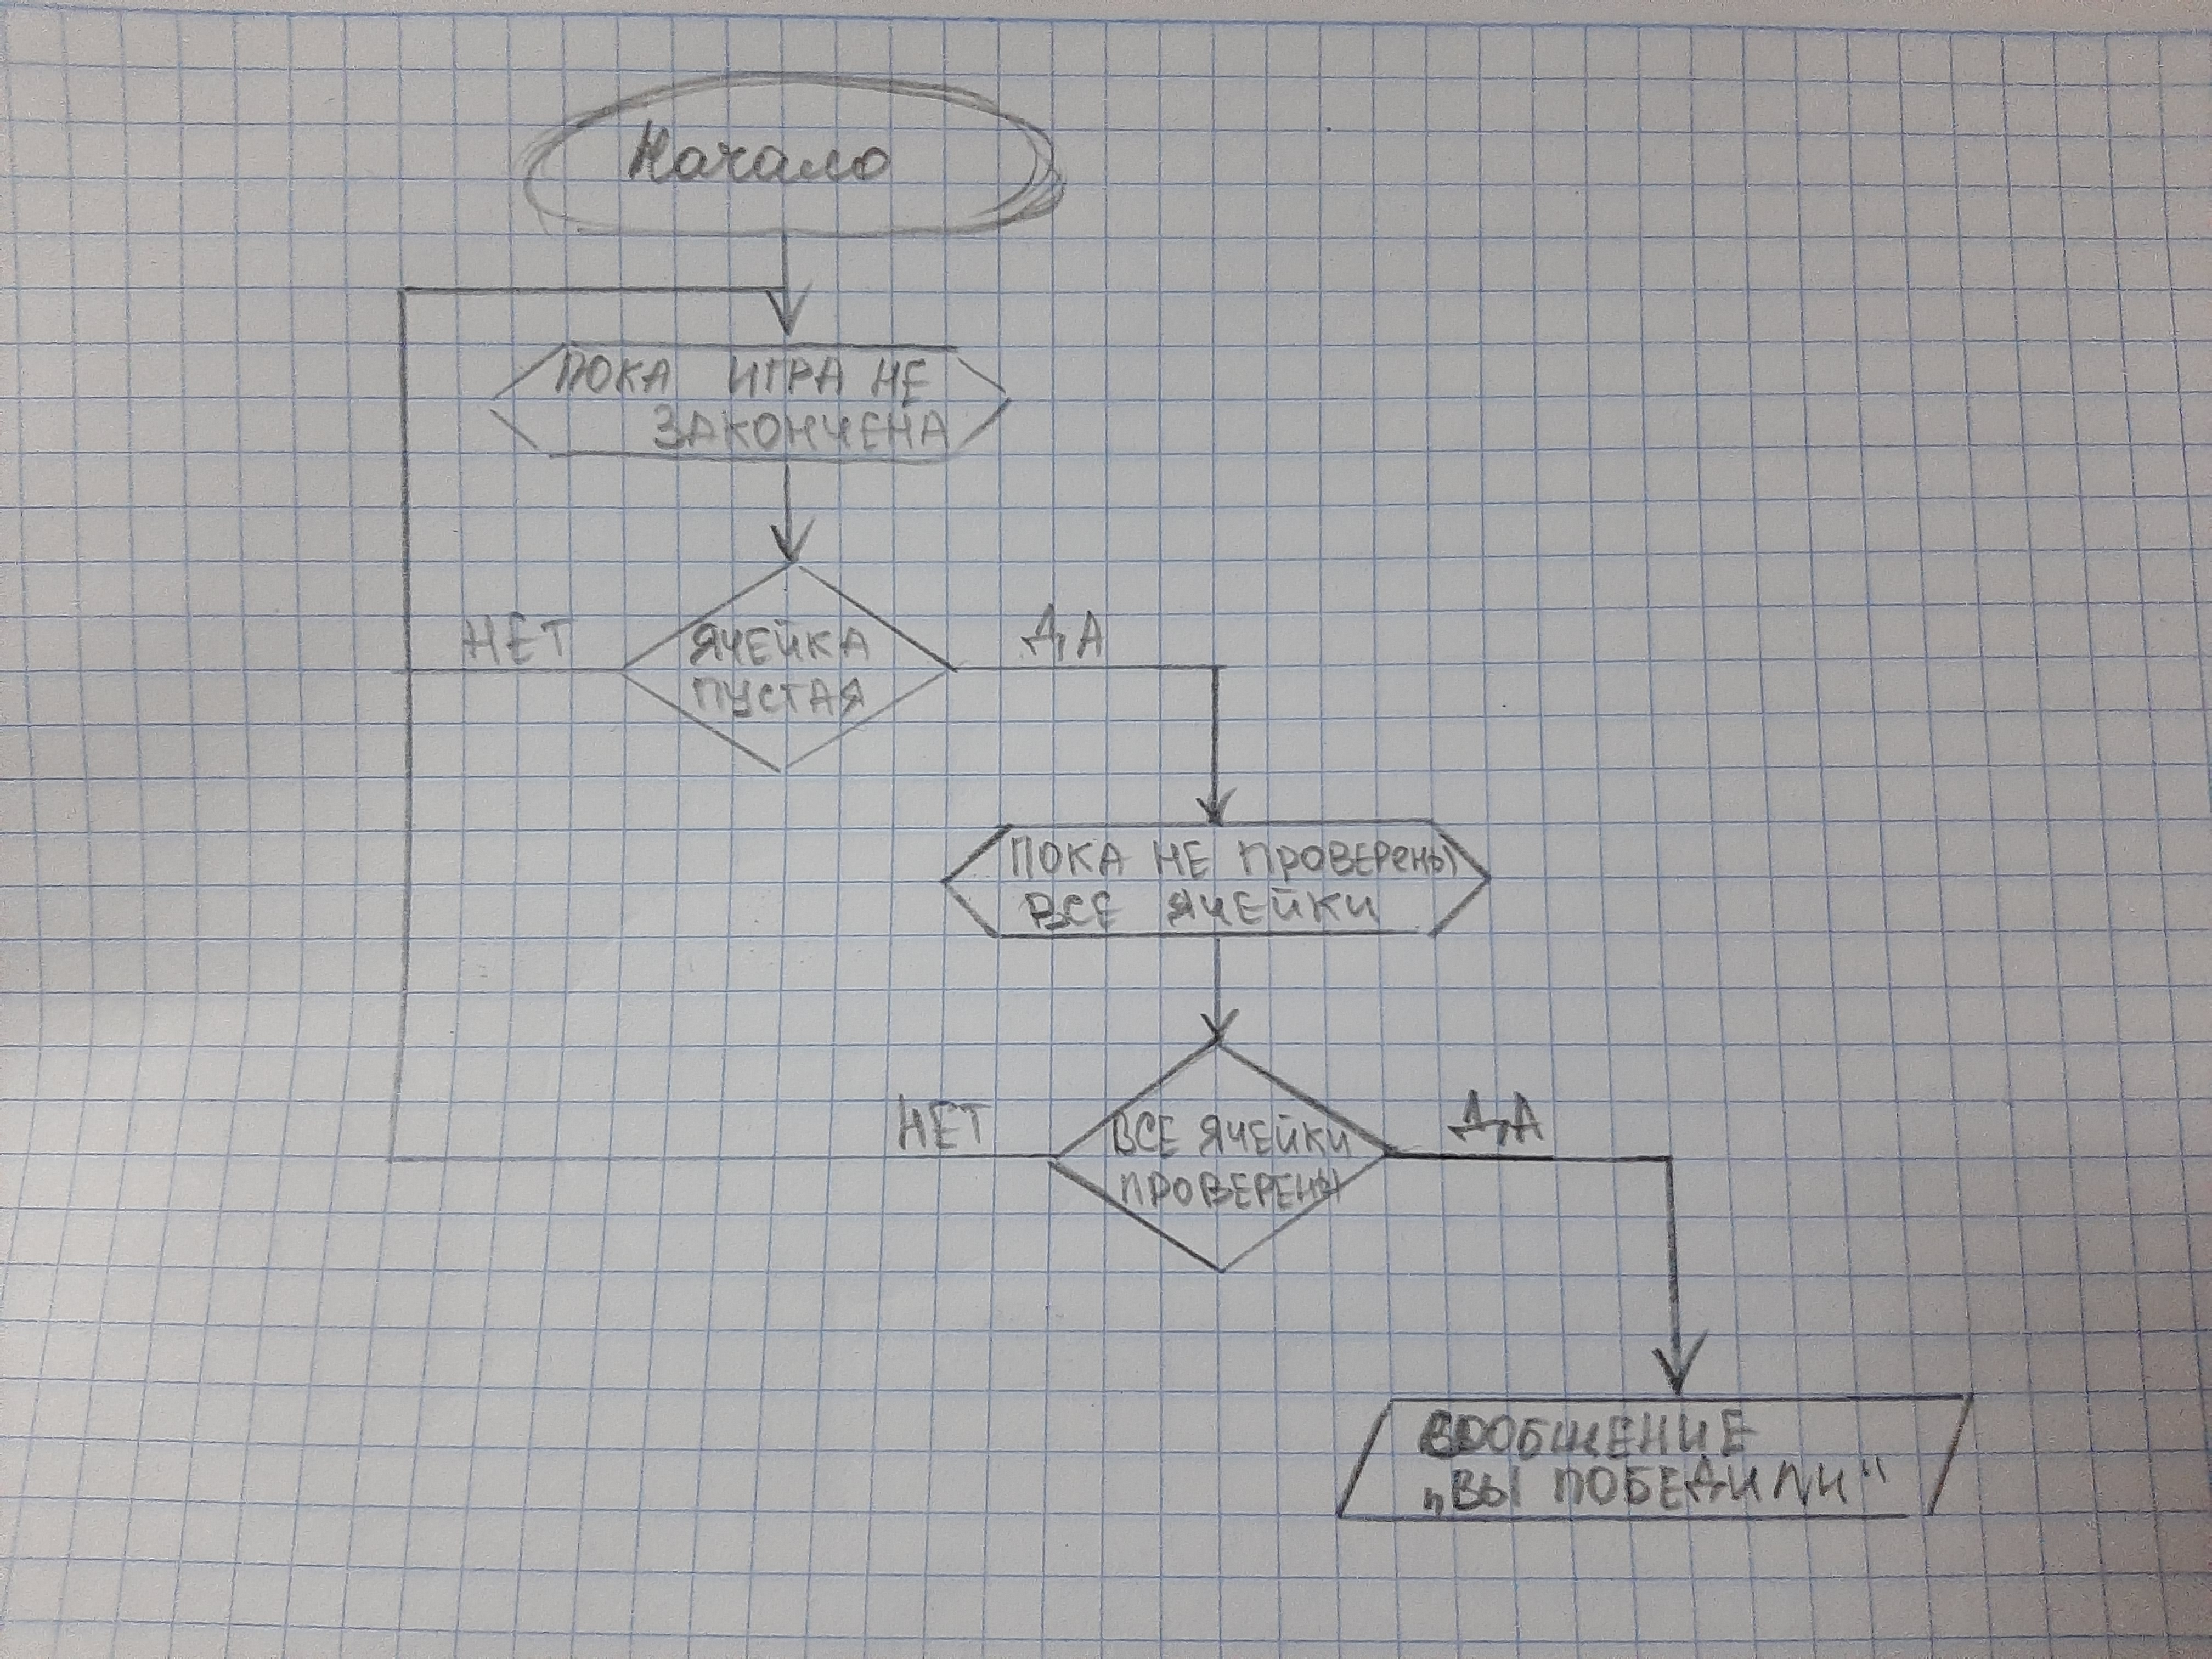 Начало
ПОКА ИГРА НЕ
ЗАКОНЧЕНА
НЕТ
ЯЧЕЙКА
ПУСТАЯ
ДА
ПОКА НЕ ПРОВЕРЕНЫ
ВСЕ ЯЧЕЙКИ
НЕТ
ВСЕ ЯЧЕЙКИ
ПРОВЕРЕНЫ
ДА
СООБЩЕНИЕ
„ВЫ ПОБЕДИЛИ“